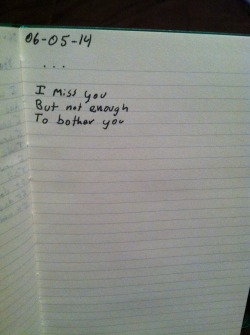 06-05-14
...
I miss you
But not enough
To bother you